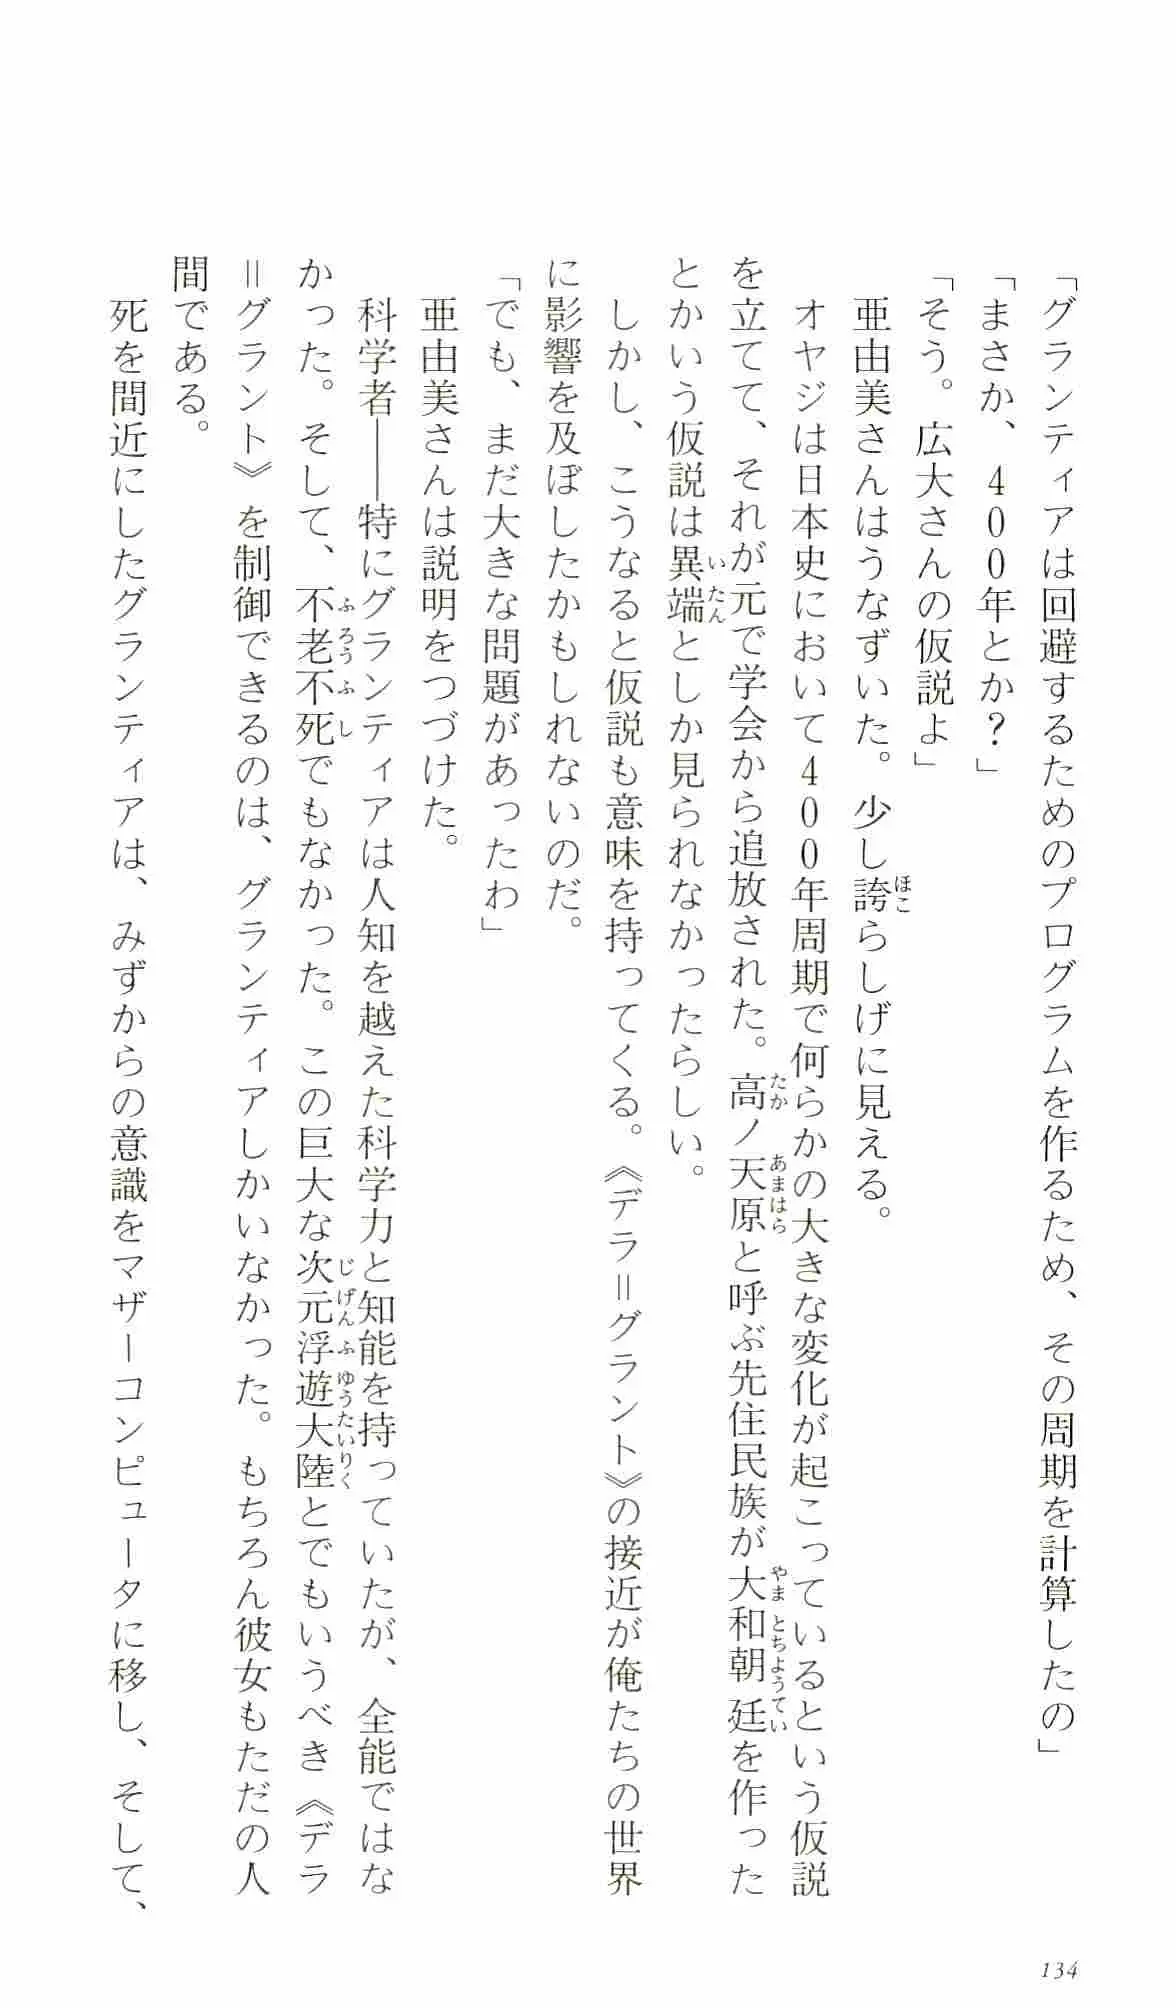 「グランティアは回避するためのプログラムを作るため、その周期を計算したの」
「まさか、400年とか？」
「そう。広大さんの仮説よ」
亜由美さんはうなずいた。少し誇らしげに見える。
オヤジは日本史において400年周期で何らかの大きな変化が起こっているという仮説
を立てて、それが元で学会から追放された。高ノ天原と呼ぶ先住民族が大和朝廷を作った
とかいう仮説は異端としか見られなかったらしい。
しかし、こうなると仮説も意味を持ってくる。《デラ＝グラント》の接近が俺たちの世界
に影響を及ぼしたかもしれないのだ。
「でも、まだ大きな問題があったわ」
亜由美さんは説明をつづけた。
科学者――特にグランティアは人知を越えた科学力と知能を持っていたが、全能ではな
かった。そして、不老不死でもなかった。この巨大な次元浮遊大陸とでもいうべき《デラ
＝グラント》を制御できるのは、グランティアしかいなかった。もちろん彼女もただの人
間である。
死を間近にしたグランティアは、みずからの意識をマザーコンピュータに移し、そして、
134